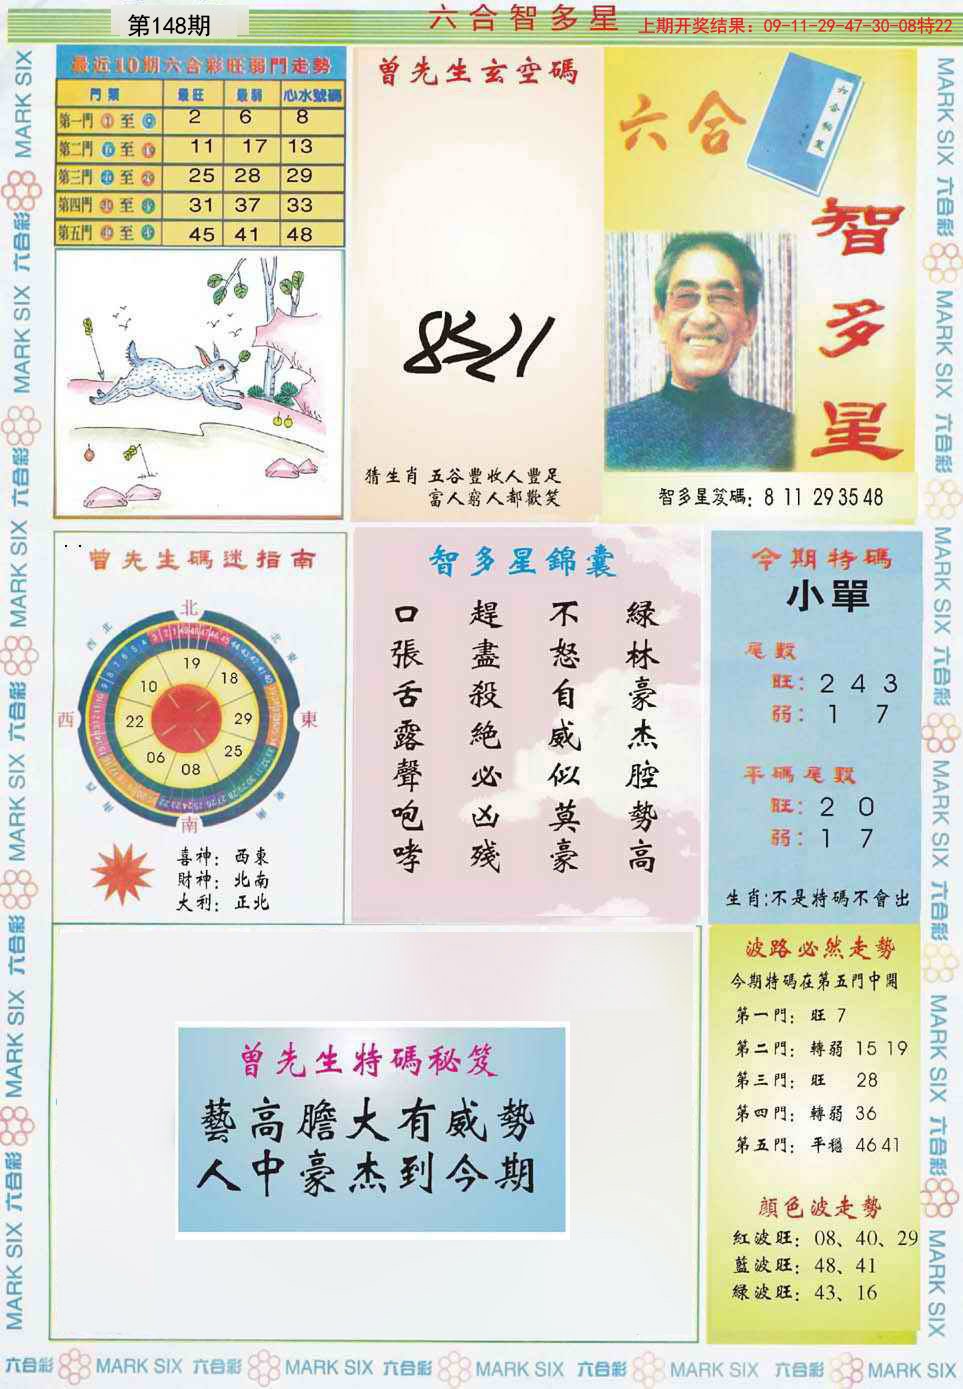 第148期
六合智多星
上期开奖结果：09-11-29-47-30-08特22
最近10期六合彩旺弱門走勢
門類 最旺 最弱 心水號碼
第一門 至 2 6 8
第二門 至 11 17 13
第三門 至 25 28 29
第四門 至 31 37 33
第五門 至 45 41 48
曾先生玄空碼
猜生肖 五谷豐收人豐足
富人窮人都歡笑
六合
智多星
智多星笈碼：8 11 29 35 48
曾先生碼迷指南
北
西北
北東
19
10 18
西 22 29 東
06 25
08
南西
東南
南
喜神：西東
財神：北南
大利：正北
智多星錦囊
綠林豪杰腔勢高
不怒自威似莫豪
趕盡殺絕必凶殘
口張舌露聲咆哮
今期特碼
小單
尾數
旺：2 4 3
弱：1 7
平碼尾數
旺：2 0
弱：1 7
生肖:不是特碼不會出
曾先生特碼秘笈
藝高膽大有威勢
人中豪杰到今期
波路必然走勢
今期特碼在第五門中開
第一門：旺 7
第二門：轉弱 15 19
第三門：旺 28
第四門：轉弱 36
第五門：平穩 46 41
顏色波走勢
紅波旺：08、40、29
藍波旺：48、41
綠波旺：43、16
MARK SIX 六合彩 MARK SIX 六合彩 MARK SIX 六合彩 MARK SIX 六合彩 MARK SIX 六合彩 MARK SIX
MARK SIX 六合彩 MARK SIX 六合彩 MARK SIX 六合彩 MARK SIX 六合彩 MARK SIX 六合彩 MARK SIX
六合彩 MARK SIX 六合彩 MARK SIX 六合彩 MARK SIX 六合彩 MARK SIX 六合彩 MARK SIX